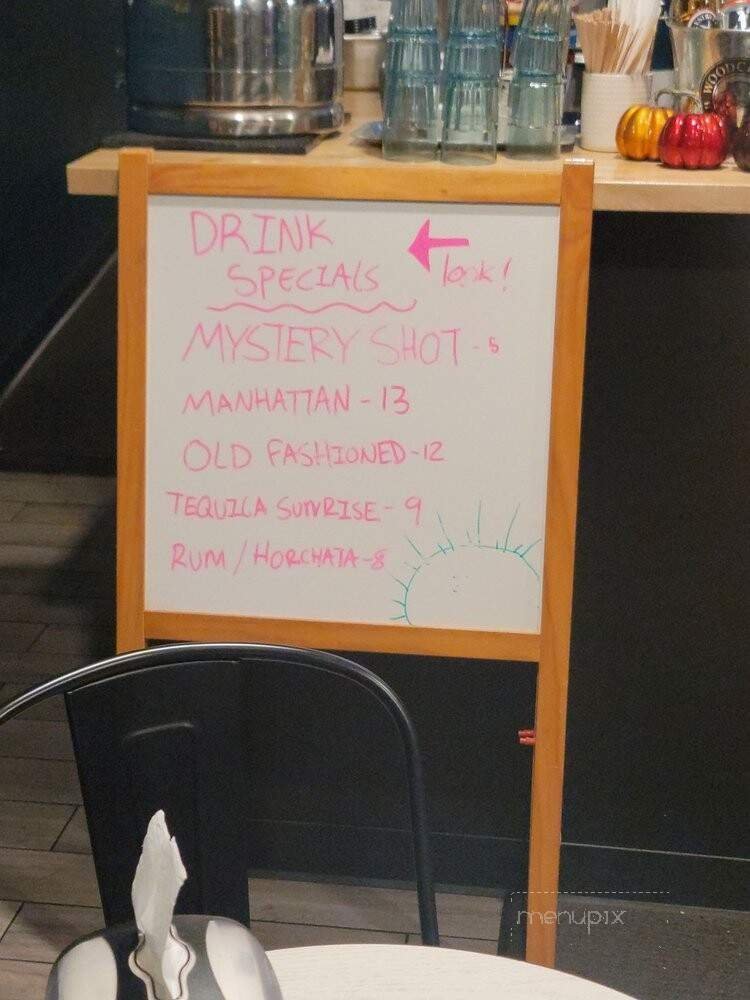 DRINK
SPECIALS
look!
MYSTERY SHOT - 5
MANHATTAN - 13
OLD FASHIONED - 12
TEQUILA SUNRISE - 9
RUM / HORCHATA - 8
menupix